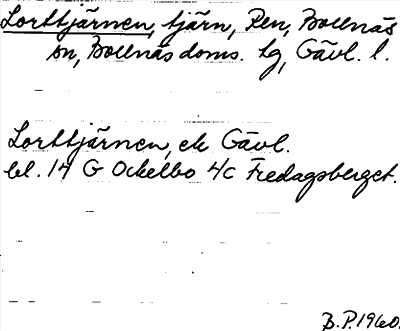 Lorttjärnen, tjärn, Ren, Bollnäs
sn, Bollnäs doms. lg, Gävl. l.
Lorttjärnen, ek Gävl.
bl. 14 G Ockelbo 4/c Fredagsberget.
B.P. 1960.